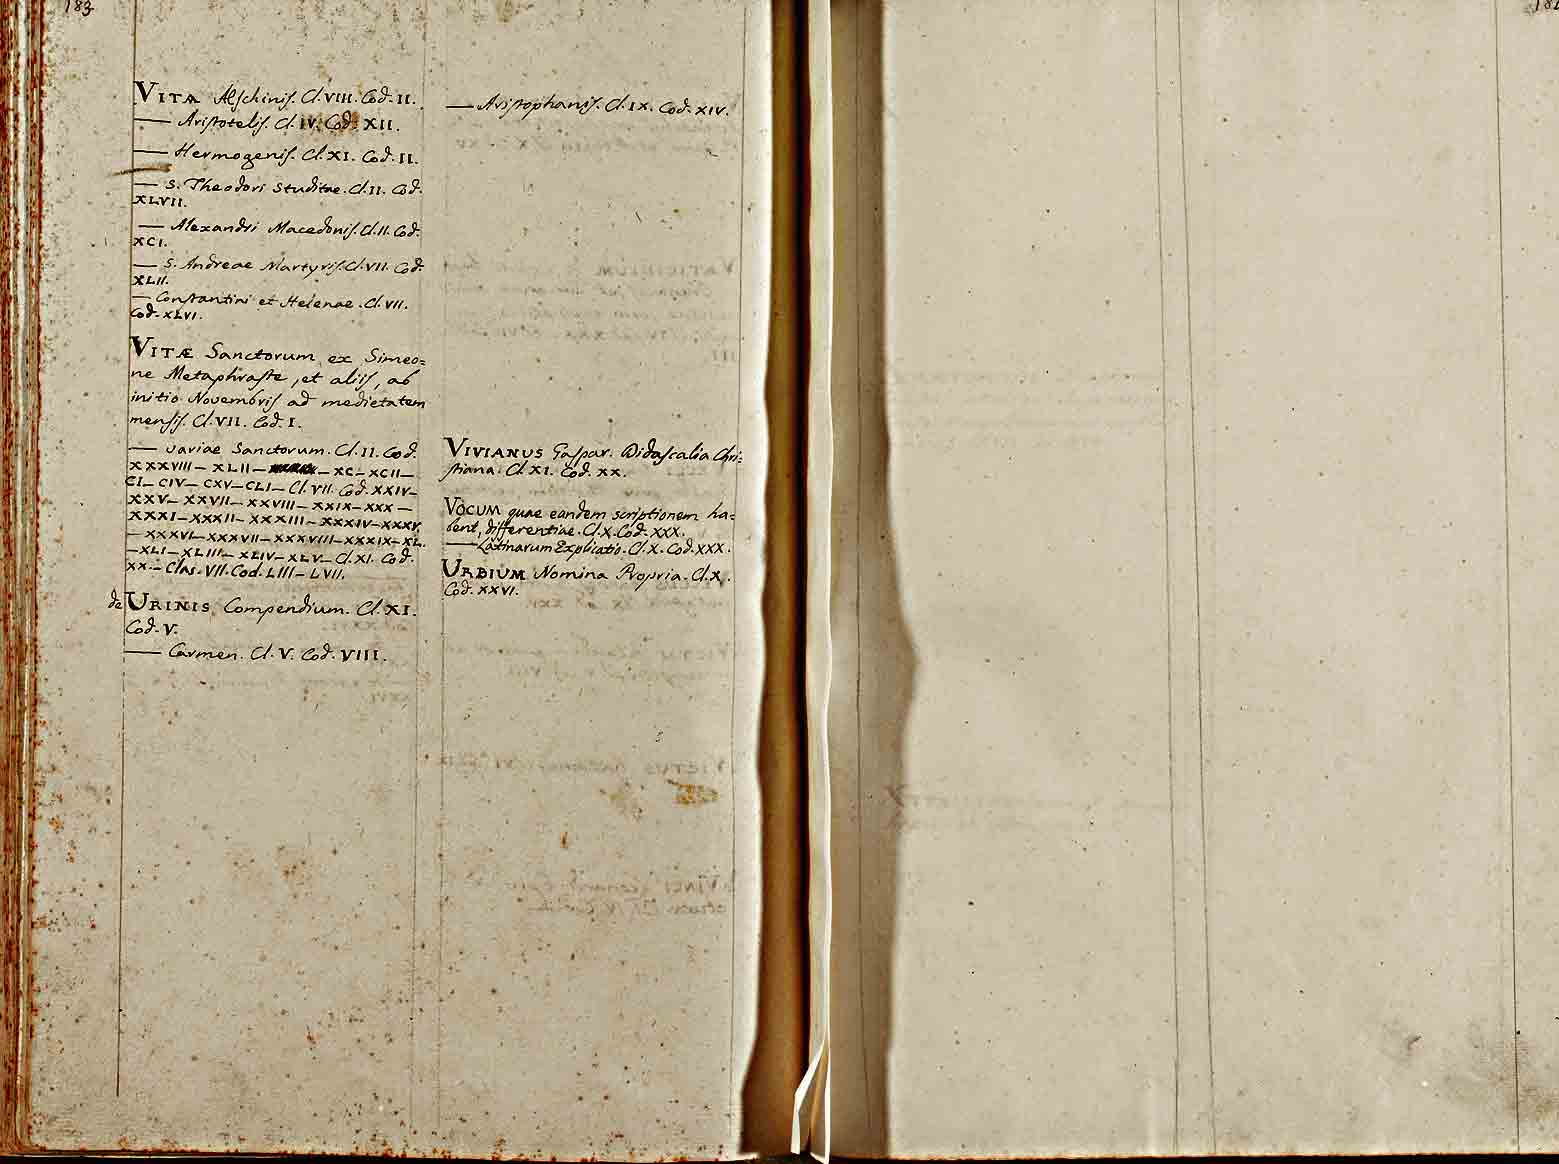 183
VITÆ Æschinis. Cl. VIII. Cod. II.
— Aristotelis. Cl. IV. Cod. XII.
— Hermogenis. Cl. XI. Cod. II.
— S. Theodori Studitae. Cl. II. Cod.
XLVII.
— Alexandri Macedonis. Cl. II. Cod.
XCI.
— S. Andreae Martyris. Cl. VII. Cod.
XLII.
— Constantini et Helenae. Cl. VII.
Cod. XLVI.
VITÆ Sanctorum ex Simeo=
ne Metaphraste, et aliis, ab
initio Novembris ad medietatem
mensis. Cl. VII. Cod. I.
— variae Sanctorum. Cl. II. Cod.
XXXVIII — XLII — — XC — XCII —
CI — CIV — CXV — CLI — Cl. VII. Cod. XXIV —
XXV — XXVII — XXVIII — XXIX — XXX —
XXXI — XXXII — XXXIII — XXXIV — XXXV
— XXXVI — XXXVII — XXXVIII — XXXIX — XL.
— XLI — XLIII — XLIV — XLV — Cl. XI. Cod.
XX. — Clas. VII. Cod. LIII — LVII.
de URINIS Compendium. Cl. XI.
Cod. V.
— Carmen. Cl. V. Cod. VIII.
— Aristophanis. Cl. IX. Cod. XIV.
VIVIANUS Gaspar. Didascalia Chri=
stiana. Cl. XI. Cod. XX.
VOCUM quae eandem scriptionem ha=
bent, differentiae. Cl. X. Cod. XXX.
— Latinarum Explicatio. Cl. X. Cod. XXX.
URBIUM Nomina Propria. Cl. X.
Cod. XXVI.